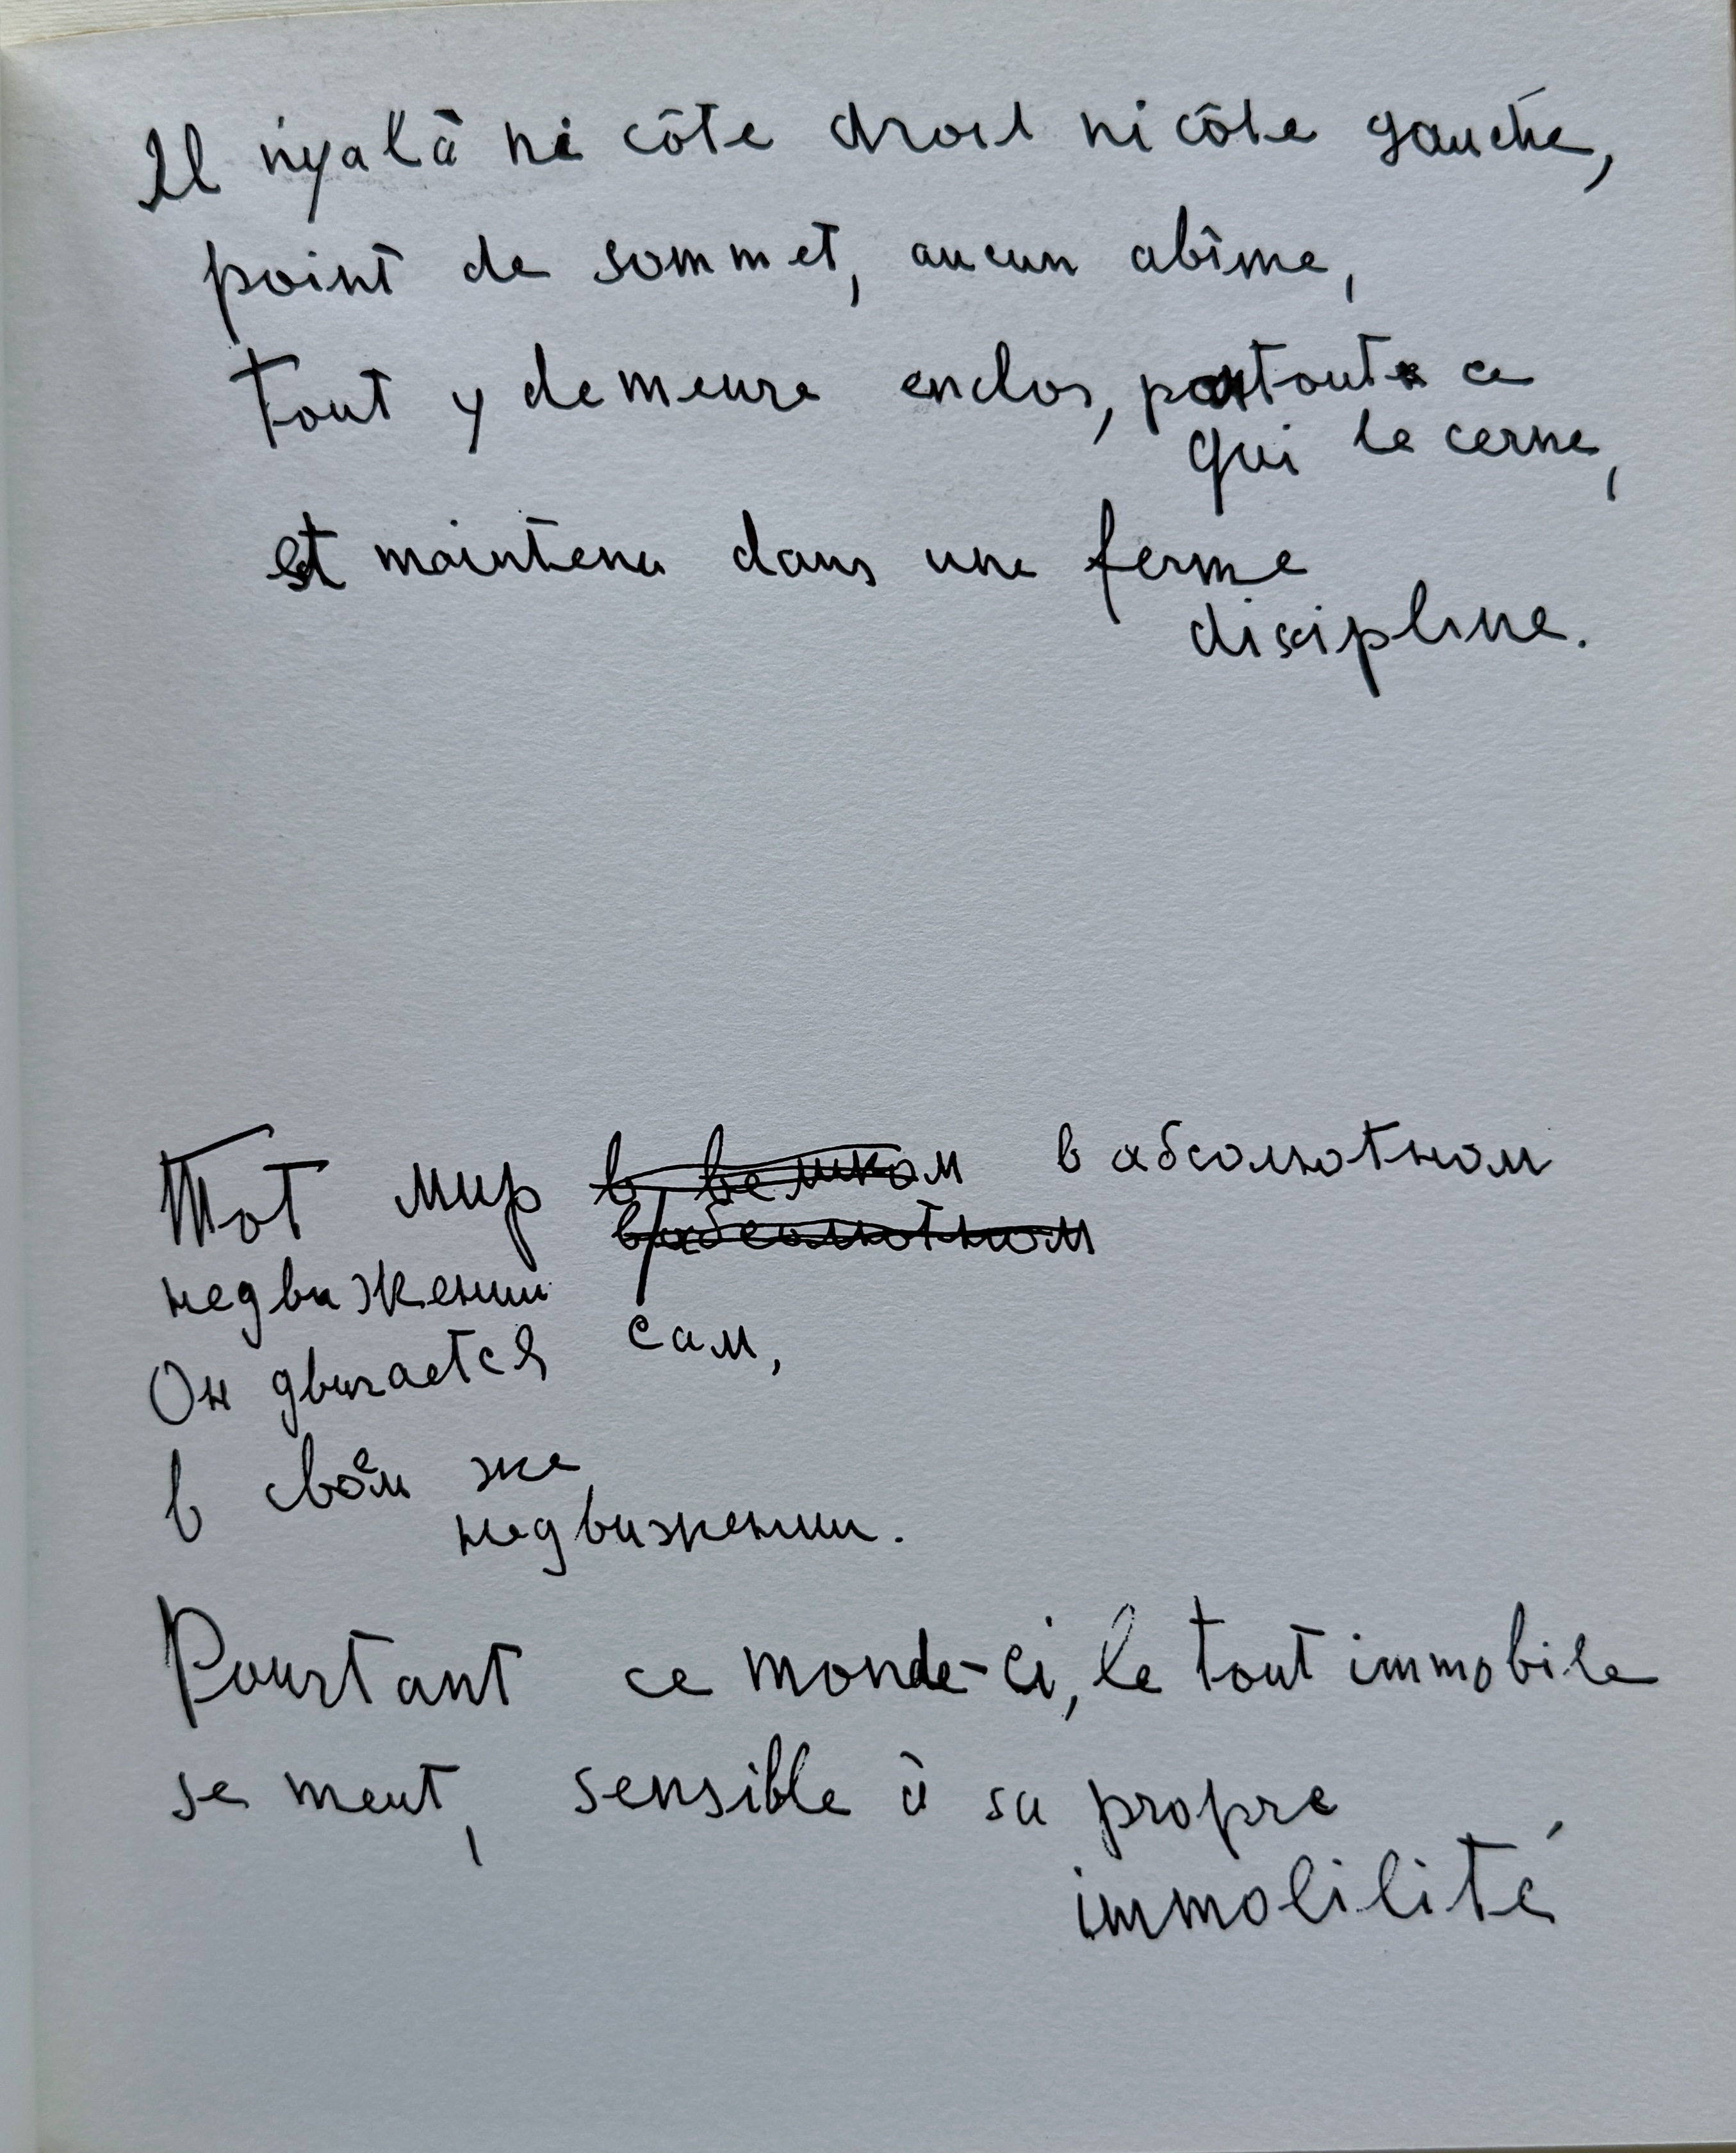 Il n'y a là ni côte droit ni côte gauche,
point de sommet, aucun abîme,
tout y demeure enclos, partout ce
qui le cerne,
et maintenu dans une ferme
discipline.
Тот мир в великом в абсолютном
в абсолютном
недвижении
Он двигается сам,
в своём же
недвижении.
Pourtant ce monde-ci, le tout immobile
se meut, sensible à sa propre
immolilité